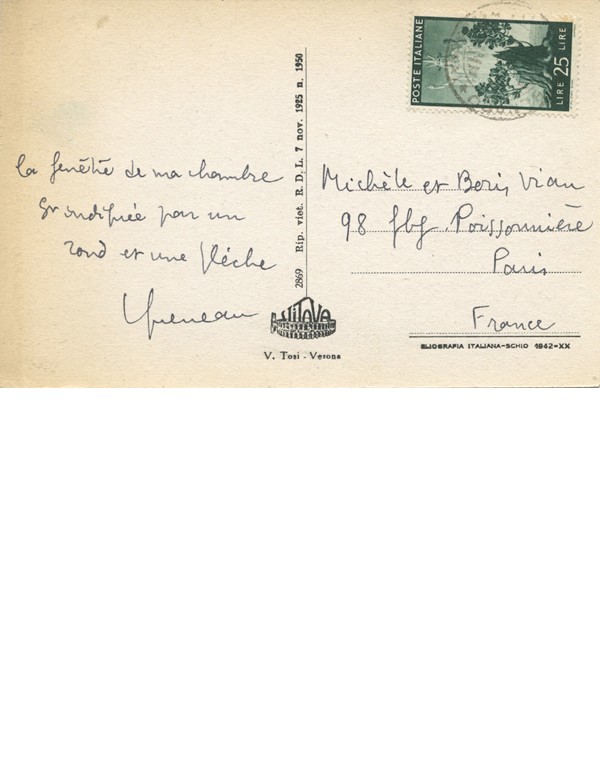 POSTE ITALIANE
LIRE 25 LIRE
la fenêtre de ma chambre
est indiquée par un
rond et une flèche
Queneau
2869 Rip. viet. R. D. L. 7 nov. 1925 n. 1950
VITAVA
V. Tosi - Verona
Michèle et Boris Vian
98 fbg Poissonnière
Paris
France
ELIOGRAFIA ITALIANA-SCHIO 1942-XX